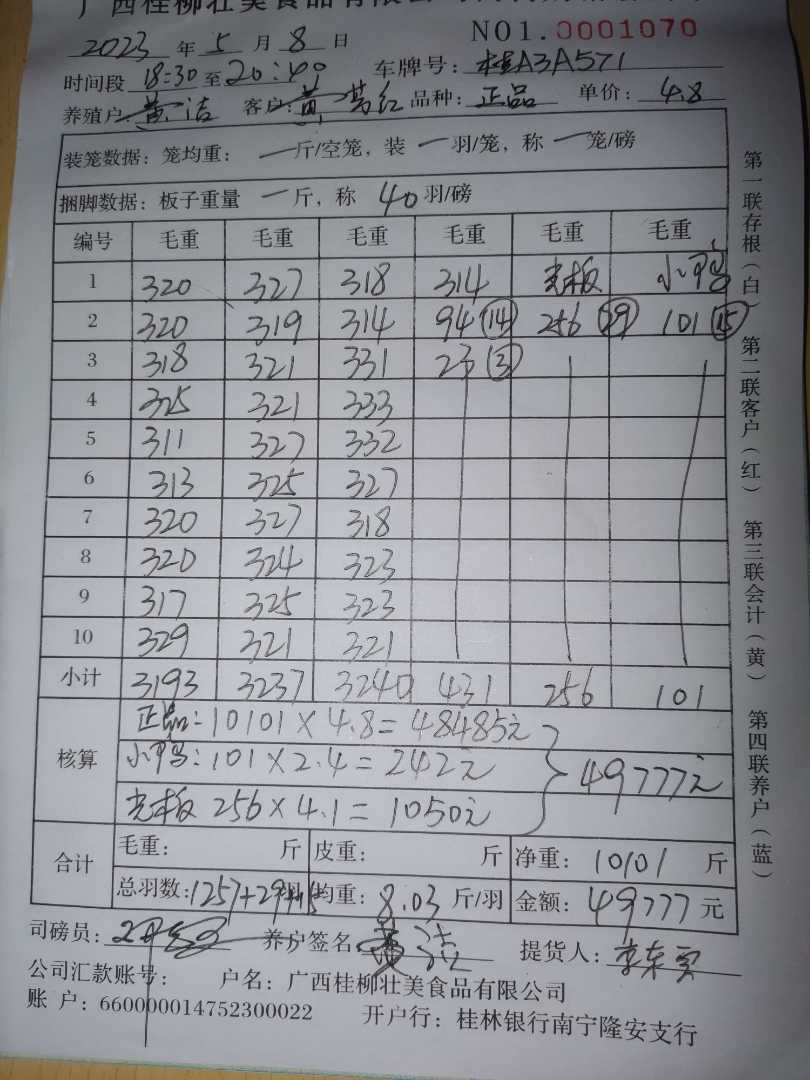 广西桂柳壮美食品有限公司
NO1.0001070
2023 年 5 月 8 日
时间段 18:30 至 20:40 车牌号: 桂A3A571
养殖户: 黄洁 客户: 黄 红 品种: 正品 单价: 4.8
装笼数据: 笼均重: 一 斤/空笼, 装 一 羽/笼, 称 一 笼/磅
捆脚数据: 板子重量 一 斤, 称 40 羽/磅
编号 毛重 毛重 毛重 毛重 毛重 毛重
1 320 327 318 314 光板 小鸭
2 320 319 314 94 (14) 256 (29) 101 (15)
3 318 321 331 23 (3)
4 325 321 333
5 311 327 332
6 313 325 327
7 320 327 318
8 320 324 323
9 317 325 323
10 329 321 321
小计 3193 3237 3240 431 256 101
核算
正品: 10101 × 4.8 = 48485元
小鸭: 101 × 2.4 = 242元
光板 256 × 4.1 = 1050元
49777元
合计
毛重: 斤 皮重: 斤 净重: 10101 斤
总羽数: 1257+29+15 均重: 8.03 斤/羽 金额: 49777 元
司磅员: 养户签名: 黄洁 提货人:
公司汇款账号: 户名: 广西桂柳壮美食品有限公司
账 户: 660000014752300022 开户行: 桂林银行南宁隆安支行
第一联存根(白) 第二联客户(红) 第三联会计(黄) 第四联养户(蓝)